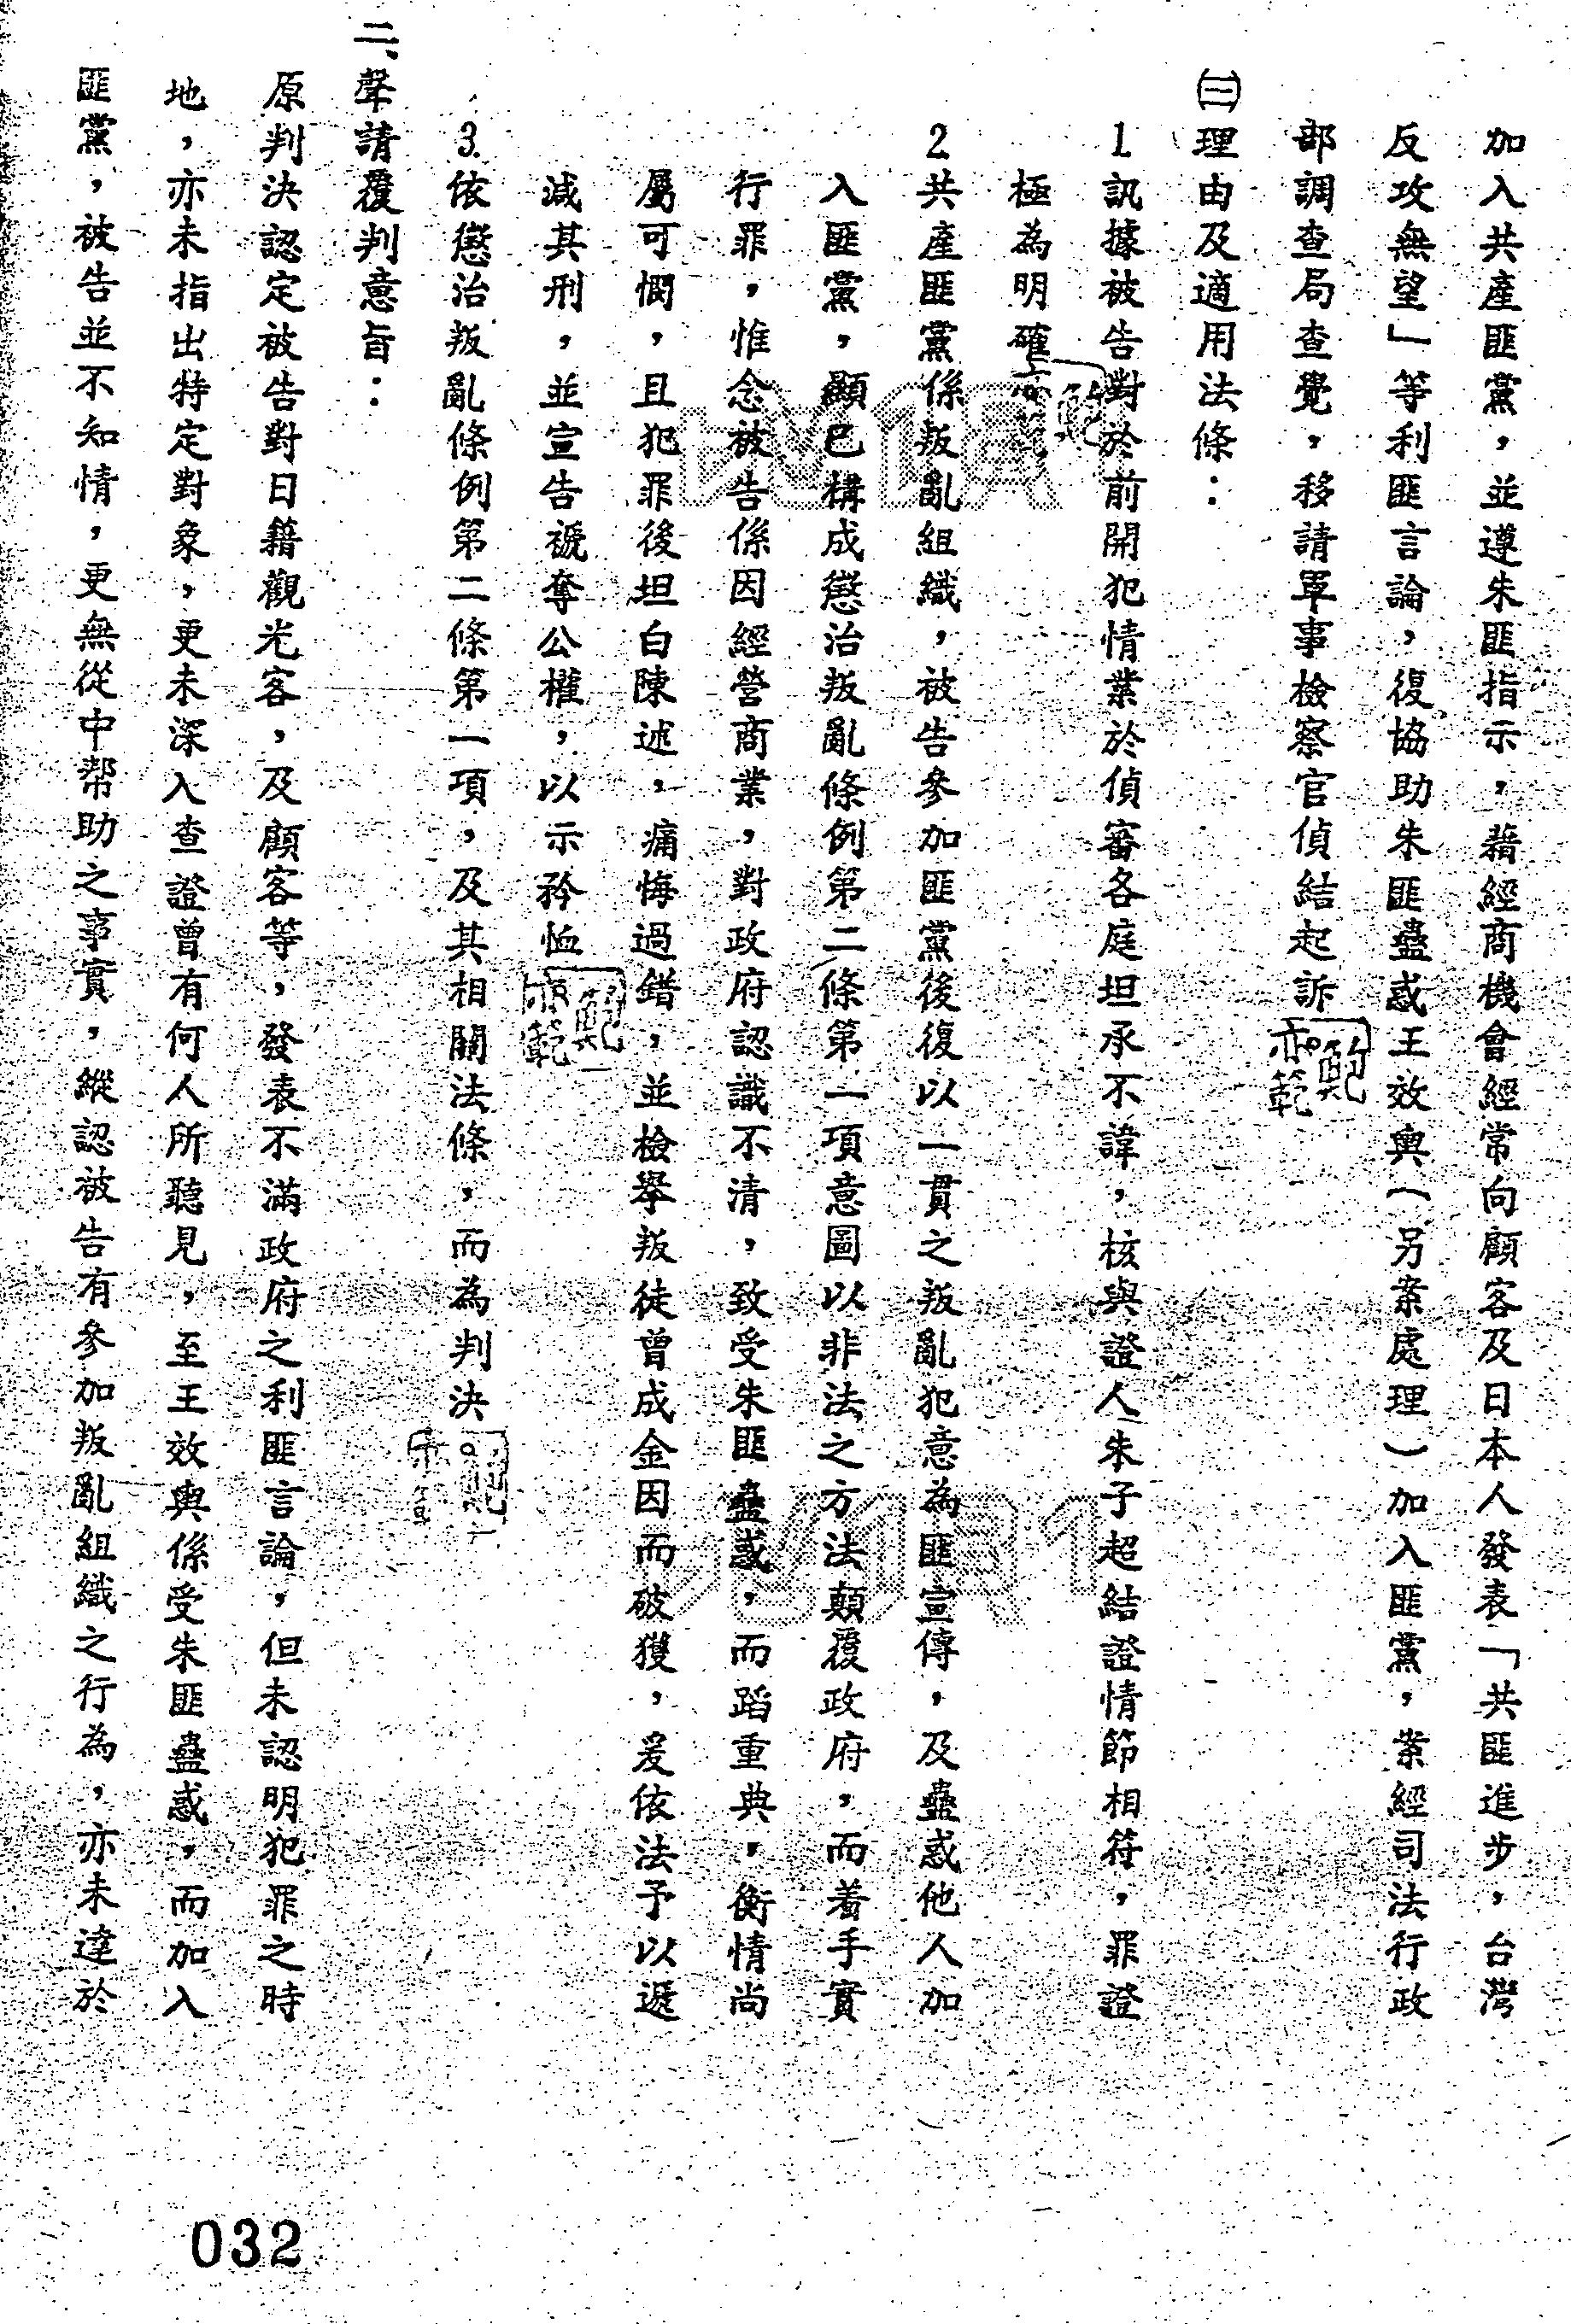 加入共產匪黨，並遵朱匪指示，藉經商機會經常向顧客及日本人發表「共匪進步，台灣
反攻無望」等利匪言論，復協助朱匪蠱惑王效輿（另案處理）加入匪黨，案經司法行政
部調查局查覺，移請軍事檢察官偵結起訴
㈢理由及適用法條：
1.訊據被告對於前開犯情業於偵審各庭坦承不諱，核與證人朱子超結證情節相符，罪證
極為明確
2.共產匪黨係叛亂組織，被告參加匪黨後復以一貫之叛亂犯意為匪宣傳，及蠱惑他人加
入匪黨，顯已構成懲治叛亂條例第二條第一項意圖以非法之方法顛覆政府，而着手實
行罪，惟念被告係因經營商業，對政府認識不清，致受朱匪蠱惑，而蹈重典，衡情尚
屬可憫，且犯罪後坦白陳述，痛悔過錯，並檢舉叛徒曾成金因而破獲，爰依法予以遞
減其刑，並宣告褫奪公權，以示矜恤
3.依懲治叛亂條例第二條第一項，及其相關法條，而為判決
二、聲請覆判意旨：
原判決認定被告對日籍觀光客，及顧客等，發表不滿政府之利匪言論，但未認明犯罪之時
地，亦未指出特定對象，更未深入查證曾有何人所聽見，至王效輿係受朱匪蠱惑，而加入
匪黨，被告並不知情，更無從中幫助之事實，縱認被告有參加叛亂組織之行為，亦未達於
032